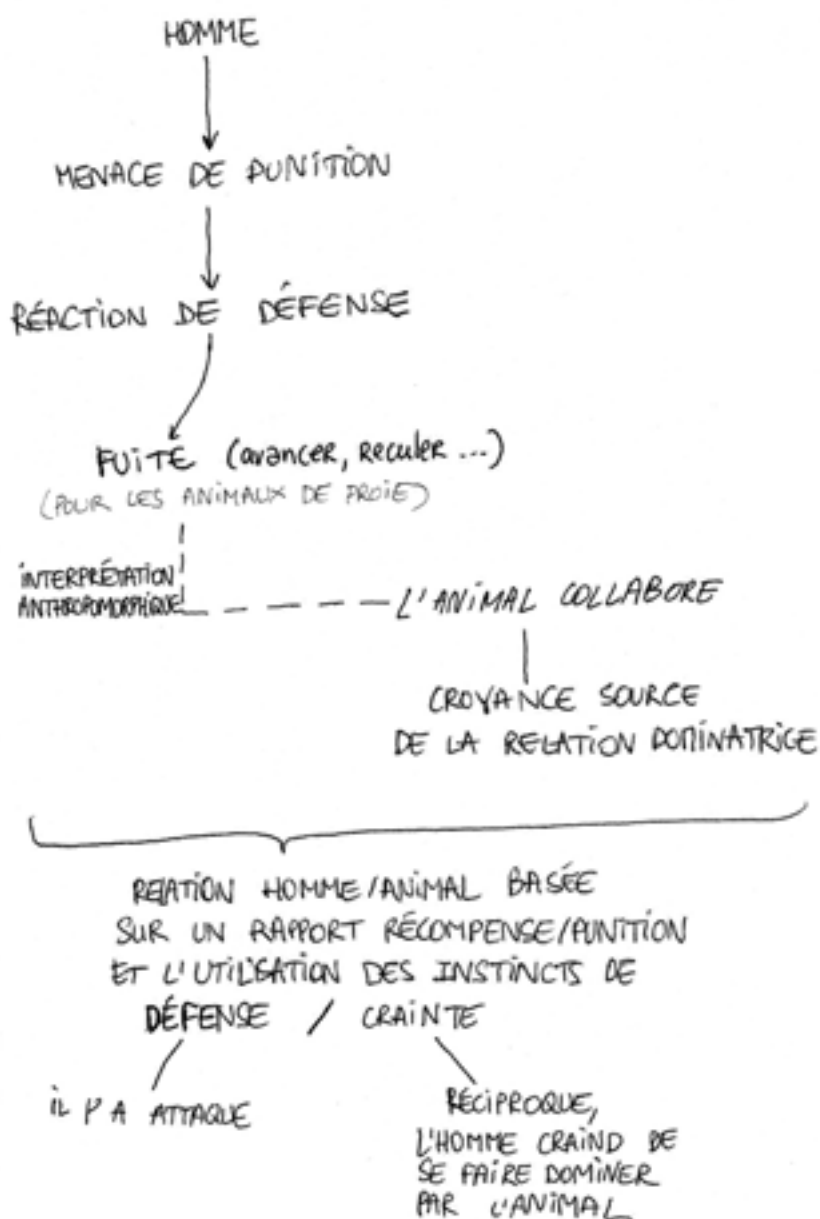 HOMME
MENACE DE PUNITION
RÉACTION DE DÉFENSE
FUITE (avancer, Reculer ...)
(POUR LES ANIMAUX DE PROIE)
INTERPRÉTATION
ANTHROPOMORPHIQUE
L'ANIMAL COLLABORE
CROYANCE SOURCE
DE LA RELATION DOMINATRICE
RELATION HOMME/ANIMAL BASÉE
SUR UN RAPPORT RÉCOMPENSE/PUNITION
ET L'UTILISATION DES INSTINCTS DE
DÉFENSE / CRAINTE
IL Y A ATTAQUE
RÉCIPROQUE,
L'HOMME CRAIND DE
SE FAIRE DOMINER
PAR L'ANIMAL